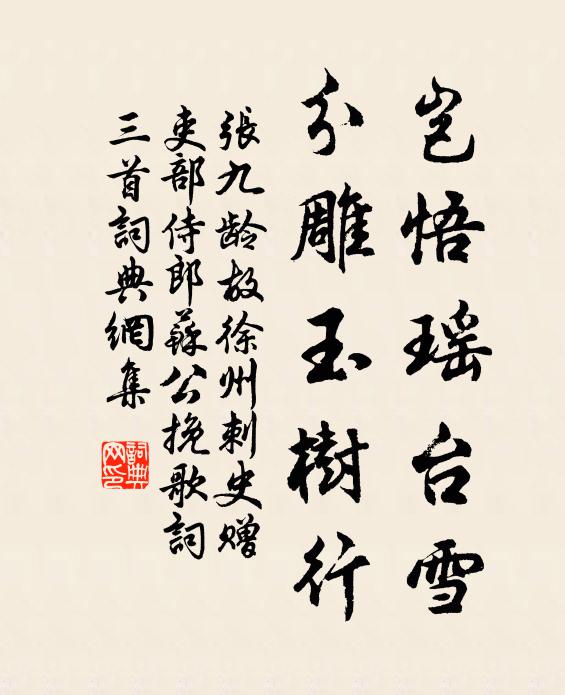 岂悟瑶台雪
分雕玉樹行
張九龄故徐州刺史赠
吏部侍郎蘇公挽歌詞
三首詞典網集
詞典网印